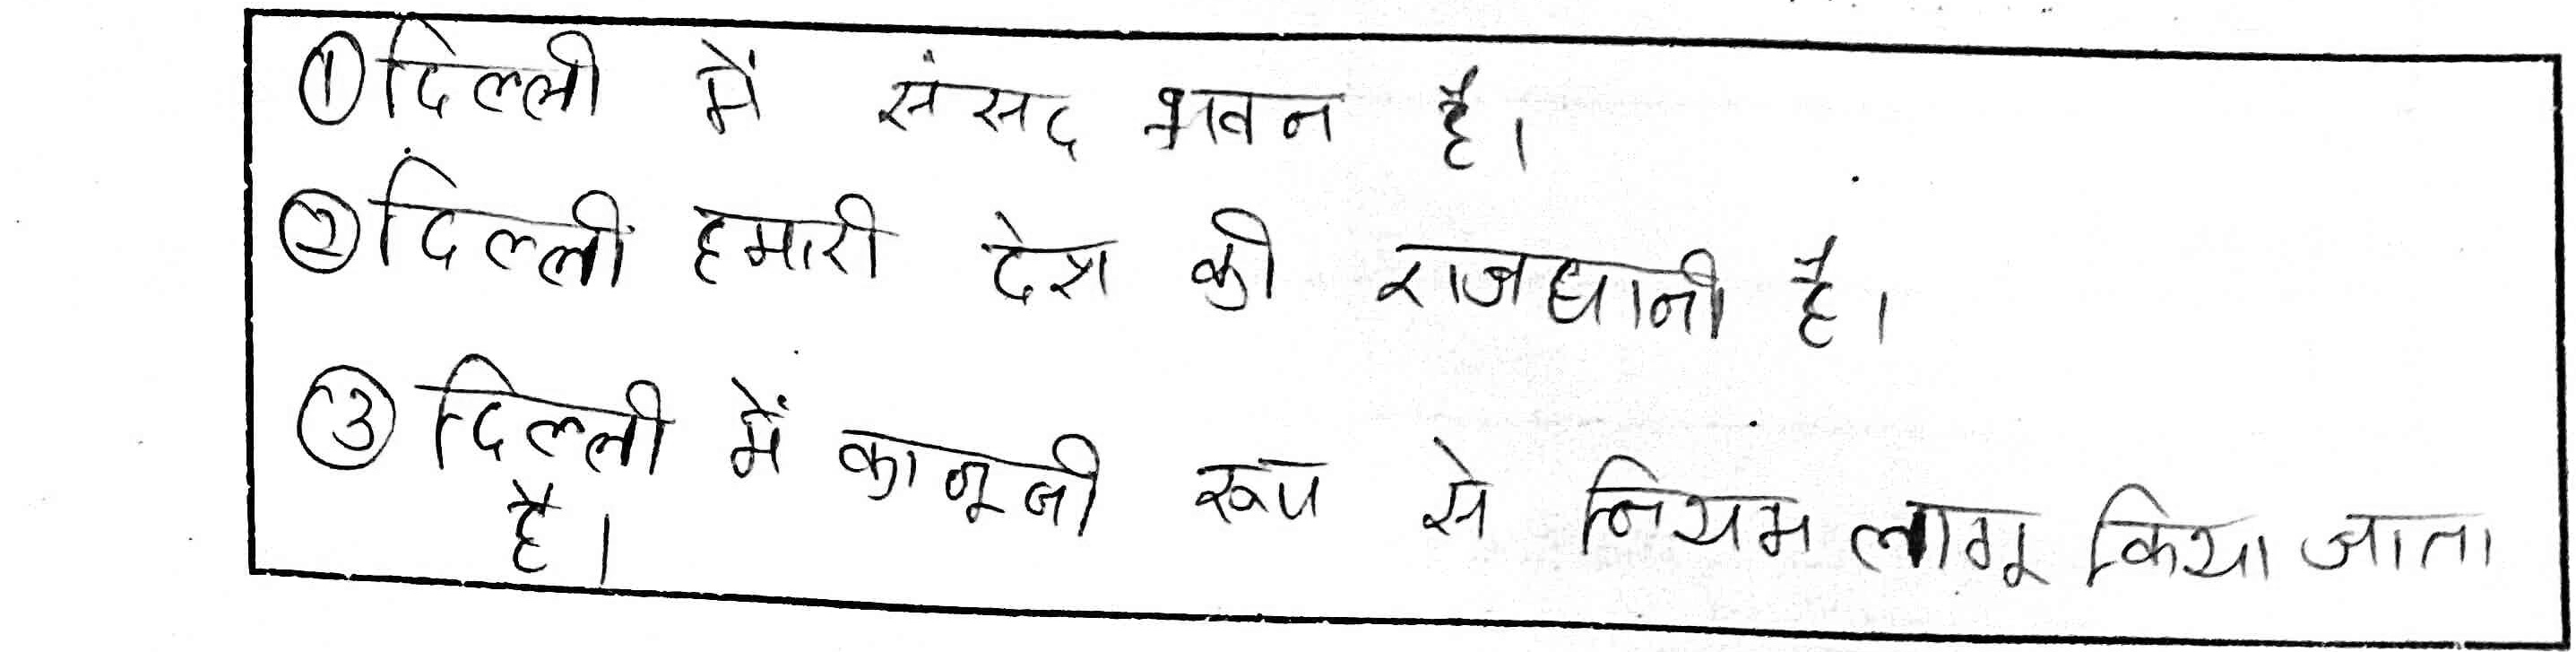 ① दिल्ली में संसद भवन है।
② दिल्ली हमारी देश की राजधानी है।
③ दिल्ली में कानूनी रूप से नियम लागू किया जाता
है।